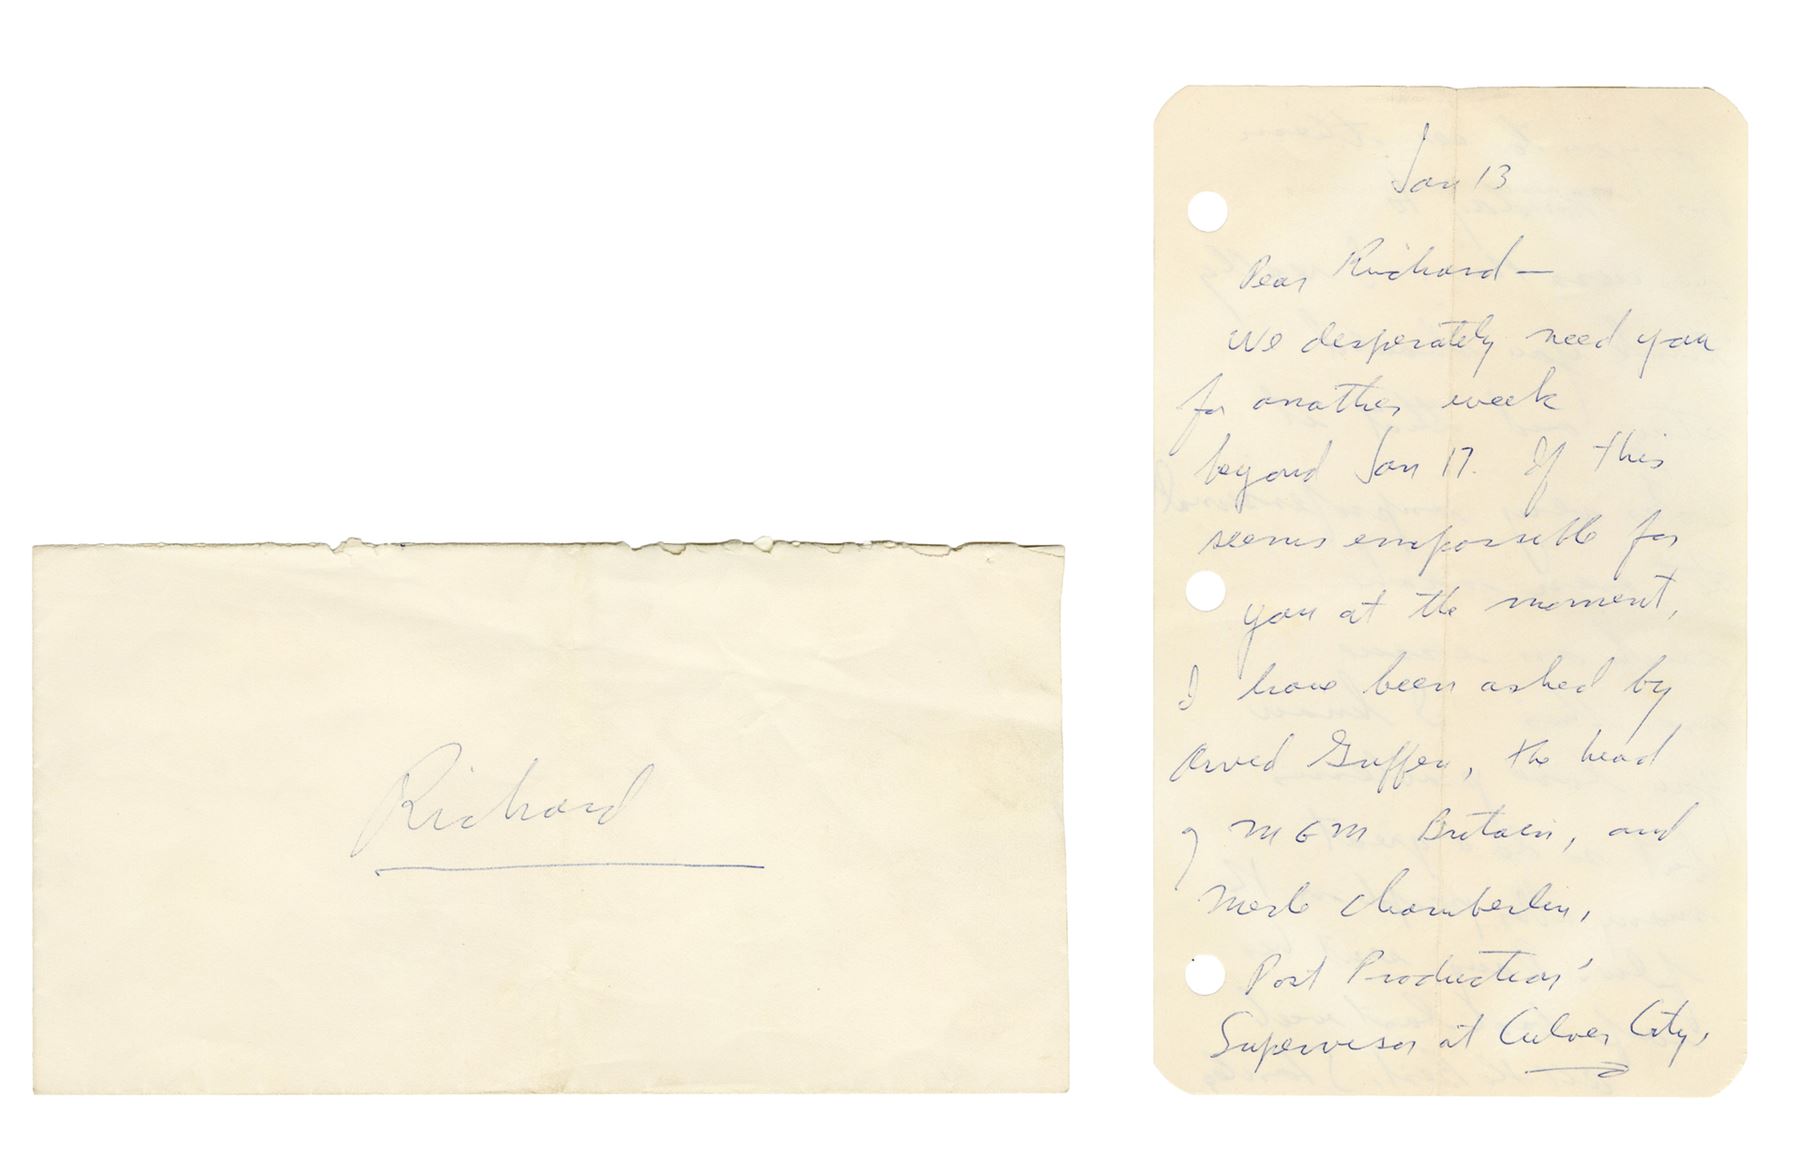 Richard
Jan 13
Dear Richard—
We desperately need you
for another week
beyond Jan 17. If this
seems impossible for
you at the moment,
I have been asked by
Arved Griffen, the head
of MGM Britain, and
Merle Chamberlin,
Post Production
Supervisor at Culver City,